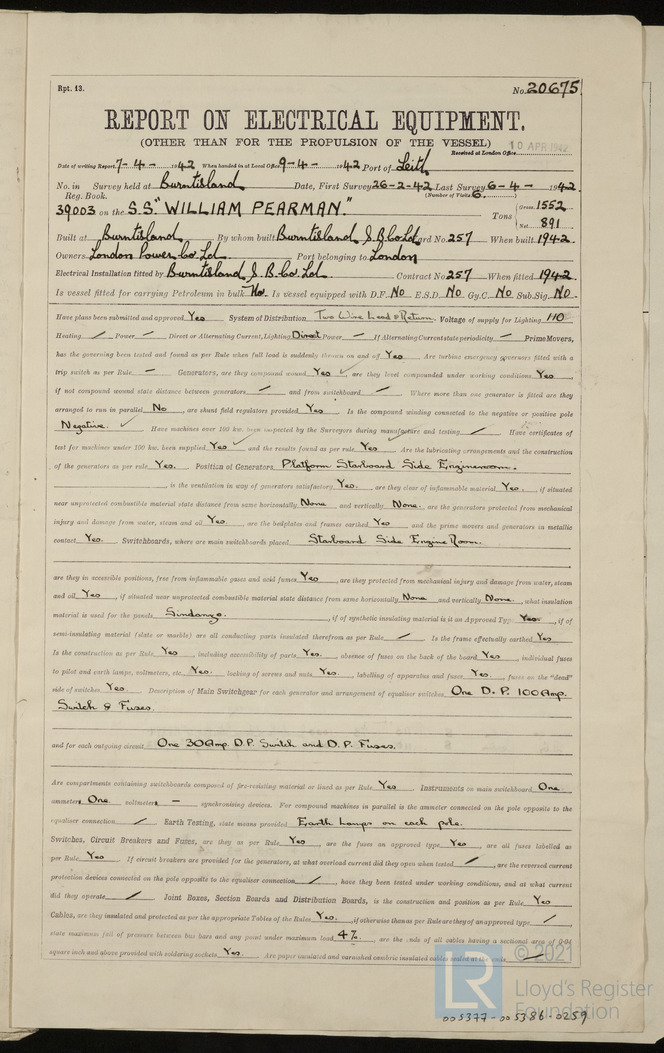 Rpt. 13.
No. 20675
REPORT ON ELECTRICAL EQUIPMENT.
(OTHER THAN FOR THE PROPULSION OF THE VESSEL)
10 APR 1942
Received at London Office
Date of writing Report 7-4- 1942 When handed in at Local Office 9-4- 1942 Port of Leith
No. in Survey held at Burntisland Date, First Survey 26-2-42 Last Survey 6-4- 1942
Reg. Book. (Number of Visits 6.)
39003 on the S.S. "WILLIAM PEARMAN." Tons Gross 1552 Net 891
Built at Burntisland By whom built Burntisland S.B.Co.Ld Yard No. 257 When built 1942
Owners London Power Co. Ld. Port belonging to London
Electrical Installation fitted by Burntisland S.B.Co. Ld Contract No. 257 When fitted 1942
Is vessel fitted for carrying Petroleum in bulk No. Is vessel equipped with D.F. No E.S.D. No Gy.C. No Sub.Sig. No
Have plans been submitted and approved Yes System of Distribution Two Wire Lead & Return Voltage of supply for Lighting 110
Heating / Power / Direct or Alternating Current, Lighting Direct Power / If Alternating Current state periodicity / Prime Movers,
has the governing been tested and found as per Rule when full load is suddenly thrown on and off Yes Are turbine emergency governors fitted with a
trip switch as per Rule - Generators, are they compound wound Yes are they level compounded under working conditions Yes
if not compound wound state distance between generators / and from switchboard / Where more than one generator is fitted are they
arranged to run in parallel No, are shunt field regulators provided Yes Is the compound winding connected to the negative or positive pole
Negative. Have machines over 100 kw. been inspected by the Surveyors during manufacture and testing / Have certificates of
test for machines under 100 kw. been supplied Yes and the results found as per rule Yes Are the lubricating arrangements and the construction
of the generators as per rule Yes. Position of Generators Platform Starboard Side Engineroom.
is the ventilation in way of generators satisfactory Yes. are they clear of inflammable material Yes, if situated
near unprotected combustible material state distance from same horizontally None and vertically None. are the generators protected from mechanical
injury and damage from water, steam and oil Yes, are the bedplates and frames earthed Yes and the prime movers and generators in metallic
contact Yes. Switchboards, where are main switchboards placed Starboard Side Engine Room.
are they in accessible positions, free from inflammable gases and acid fumes Yes, are they protected from mechanical injury and damage from water, steam
and oil Yes, if situated near unprotected combustible material state distance from same horizontally None and vertically None. what insulation
material is used for the panels Sindanyo. if of synthetic insulating material is it an Approved Type Yes, if of
semi-insulating material (slate or marble) are all conducting parts insulated therefrom as per Rule / Is the frame effectually earthed Yes
Is the construction as per Rule Yes, including accessibility of parts Yes. absence of fuses on the back of the board Yes, individual fuses
to pilot and earth lamps, voltmeters, etc. Yes. locking of screws and nuts Yes. labelling of apparatus and fuses Yes. fuses on the "dead"
side of switches Yes. Description of Main Switchgear for each generator and arrangement of equaliser switches One D.P. 100 Amp.
Switch & Fuses.
and for each outgoing circuit One 30 Amp. D.P. Switch and D.P. Fuses.
Are compartments containing switchboards composed of fire-resisting material or lined as per Rule Yes Instruments on main switchboard One
ammeters One voltmeters - synchronising devices. For compound machines in parallel is the ammeter connected on the pole opposite to the
equaliser connection / Earth Testing, state means provided Earth Lamps on each pole.
Switches, Circuit Breakers and Fuses, are they as per Rule Yes are the fuses an approved type Yes, are all fuses labelled as
per Rule Yes If circuit breakers are provided for the generators, at what overload current did they open when tested /, are the reversed current
protection devices connected on the pole opposite to the equaliser connection /, have they been tested under working conditions, and at what current
did they operate / Joint Boxes, Section Boards and Distribution Boards, is the construction and position as per Rule Yes
Cables, are they insulated and protected as per the appropriate Tables of the Rules Yes. if otherwise than as per Rule are they of an approved type /,
state maximum fall of pressure between bus bars and any point under maximum load 4%. are the ends of all cables having a sectional area of 0·04
square inch and above provided with soldering sockets Yes. Are paper insulated and varnished cambric insulated cables sealed at the ends /
© 2021
LR
Lloyd's Register
Foundation
005377-005386-0259